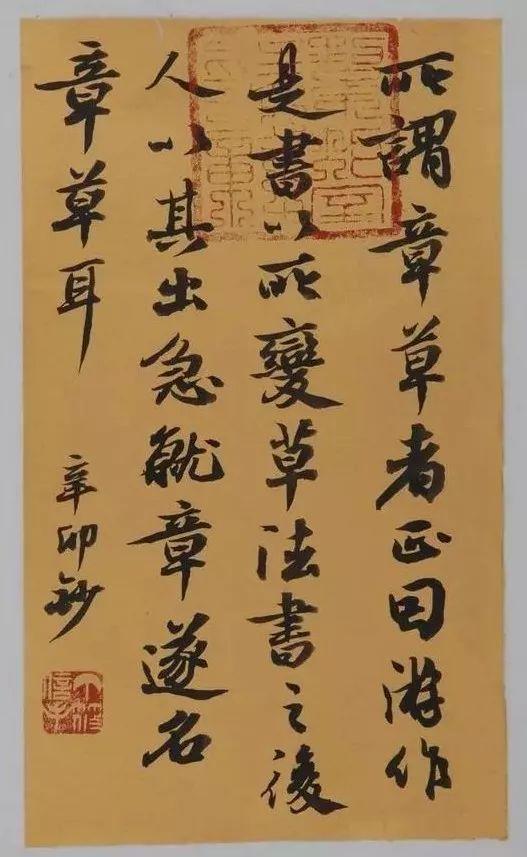 所謂章草者正因游作
是書以所變草法書之後
人以其出急就章遂名
章草耳
辛卯鈔